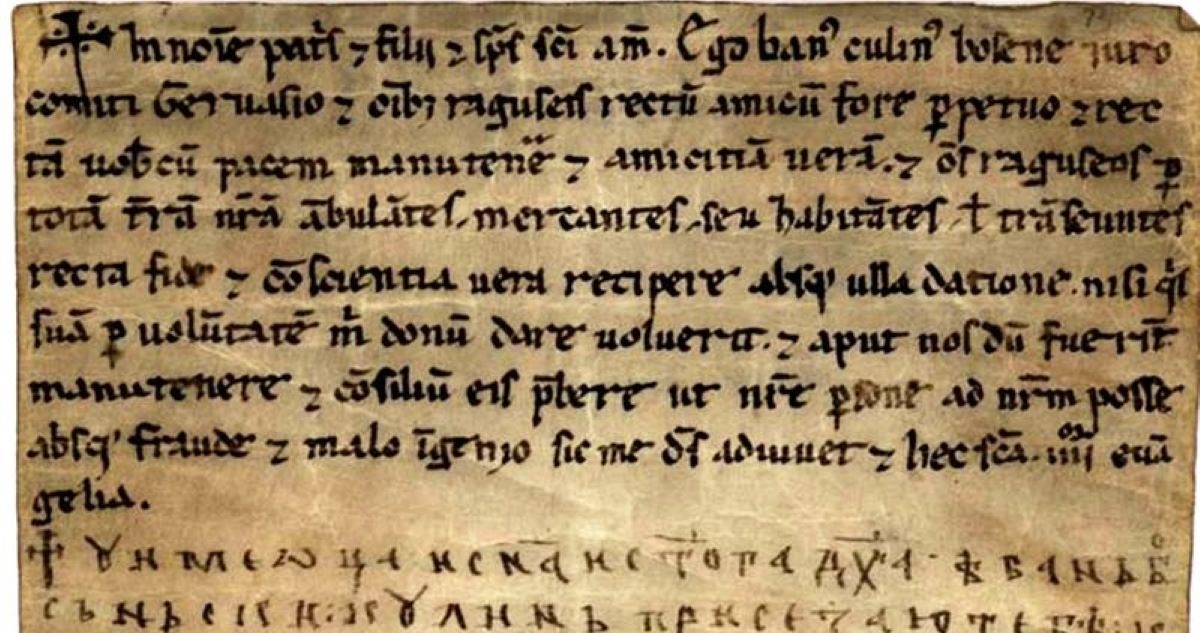 ✝ In noīe pat̄s ⁊ filii ⁊ sp̄s sc̄i am̄. Ego banꝰ culinꝰ bosene iuro
comiti Geruasio ⁊ oīb; raguseis rectū amicū fore ꝑpetuo ⁊ rec
tā uob̄cū pacem manutenē ⁊ amicitiā uerā. ⁊ ōs raguseos ꝑ
totā t̄rā nr̄ā ābulātes. mercantes. seu habitātes. ł trāseuntes
recta fide ⁊ cōscientia uera recipere absqꝫ ulla datione. nisi q̇s
suā ꝑ uolūtatē m̊ donū dare uoluerit. ⁊ aput nos dū fuerīt
manutenere ⁊ cōsiliū eis p̄bere ut nr̄e ꝑsone ad nr̄m posse
absqꝫ fraude ⁊ malo īgenio sic me d̄s adiuuet ⁊ hec sc̄a .iiiiᵒʳ euā
gelia.
✝ Ꙋ имє ѡца и сн̄а и ст̄ога дх̄а · ѣ банъ б
осъньски: кꙋлинъ присєзаю тєбѣ: к